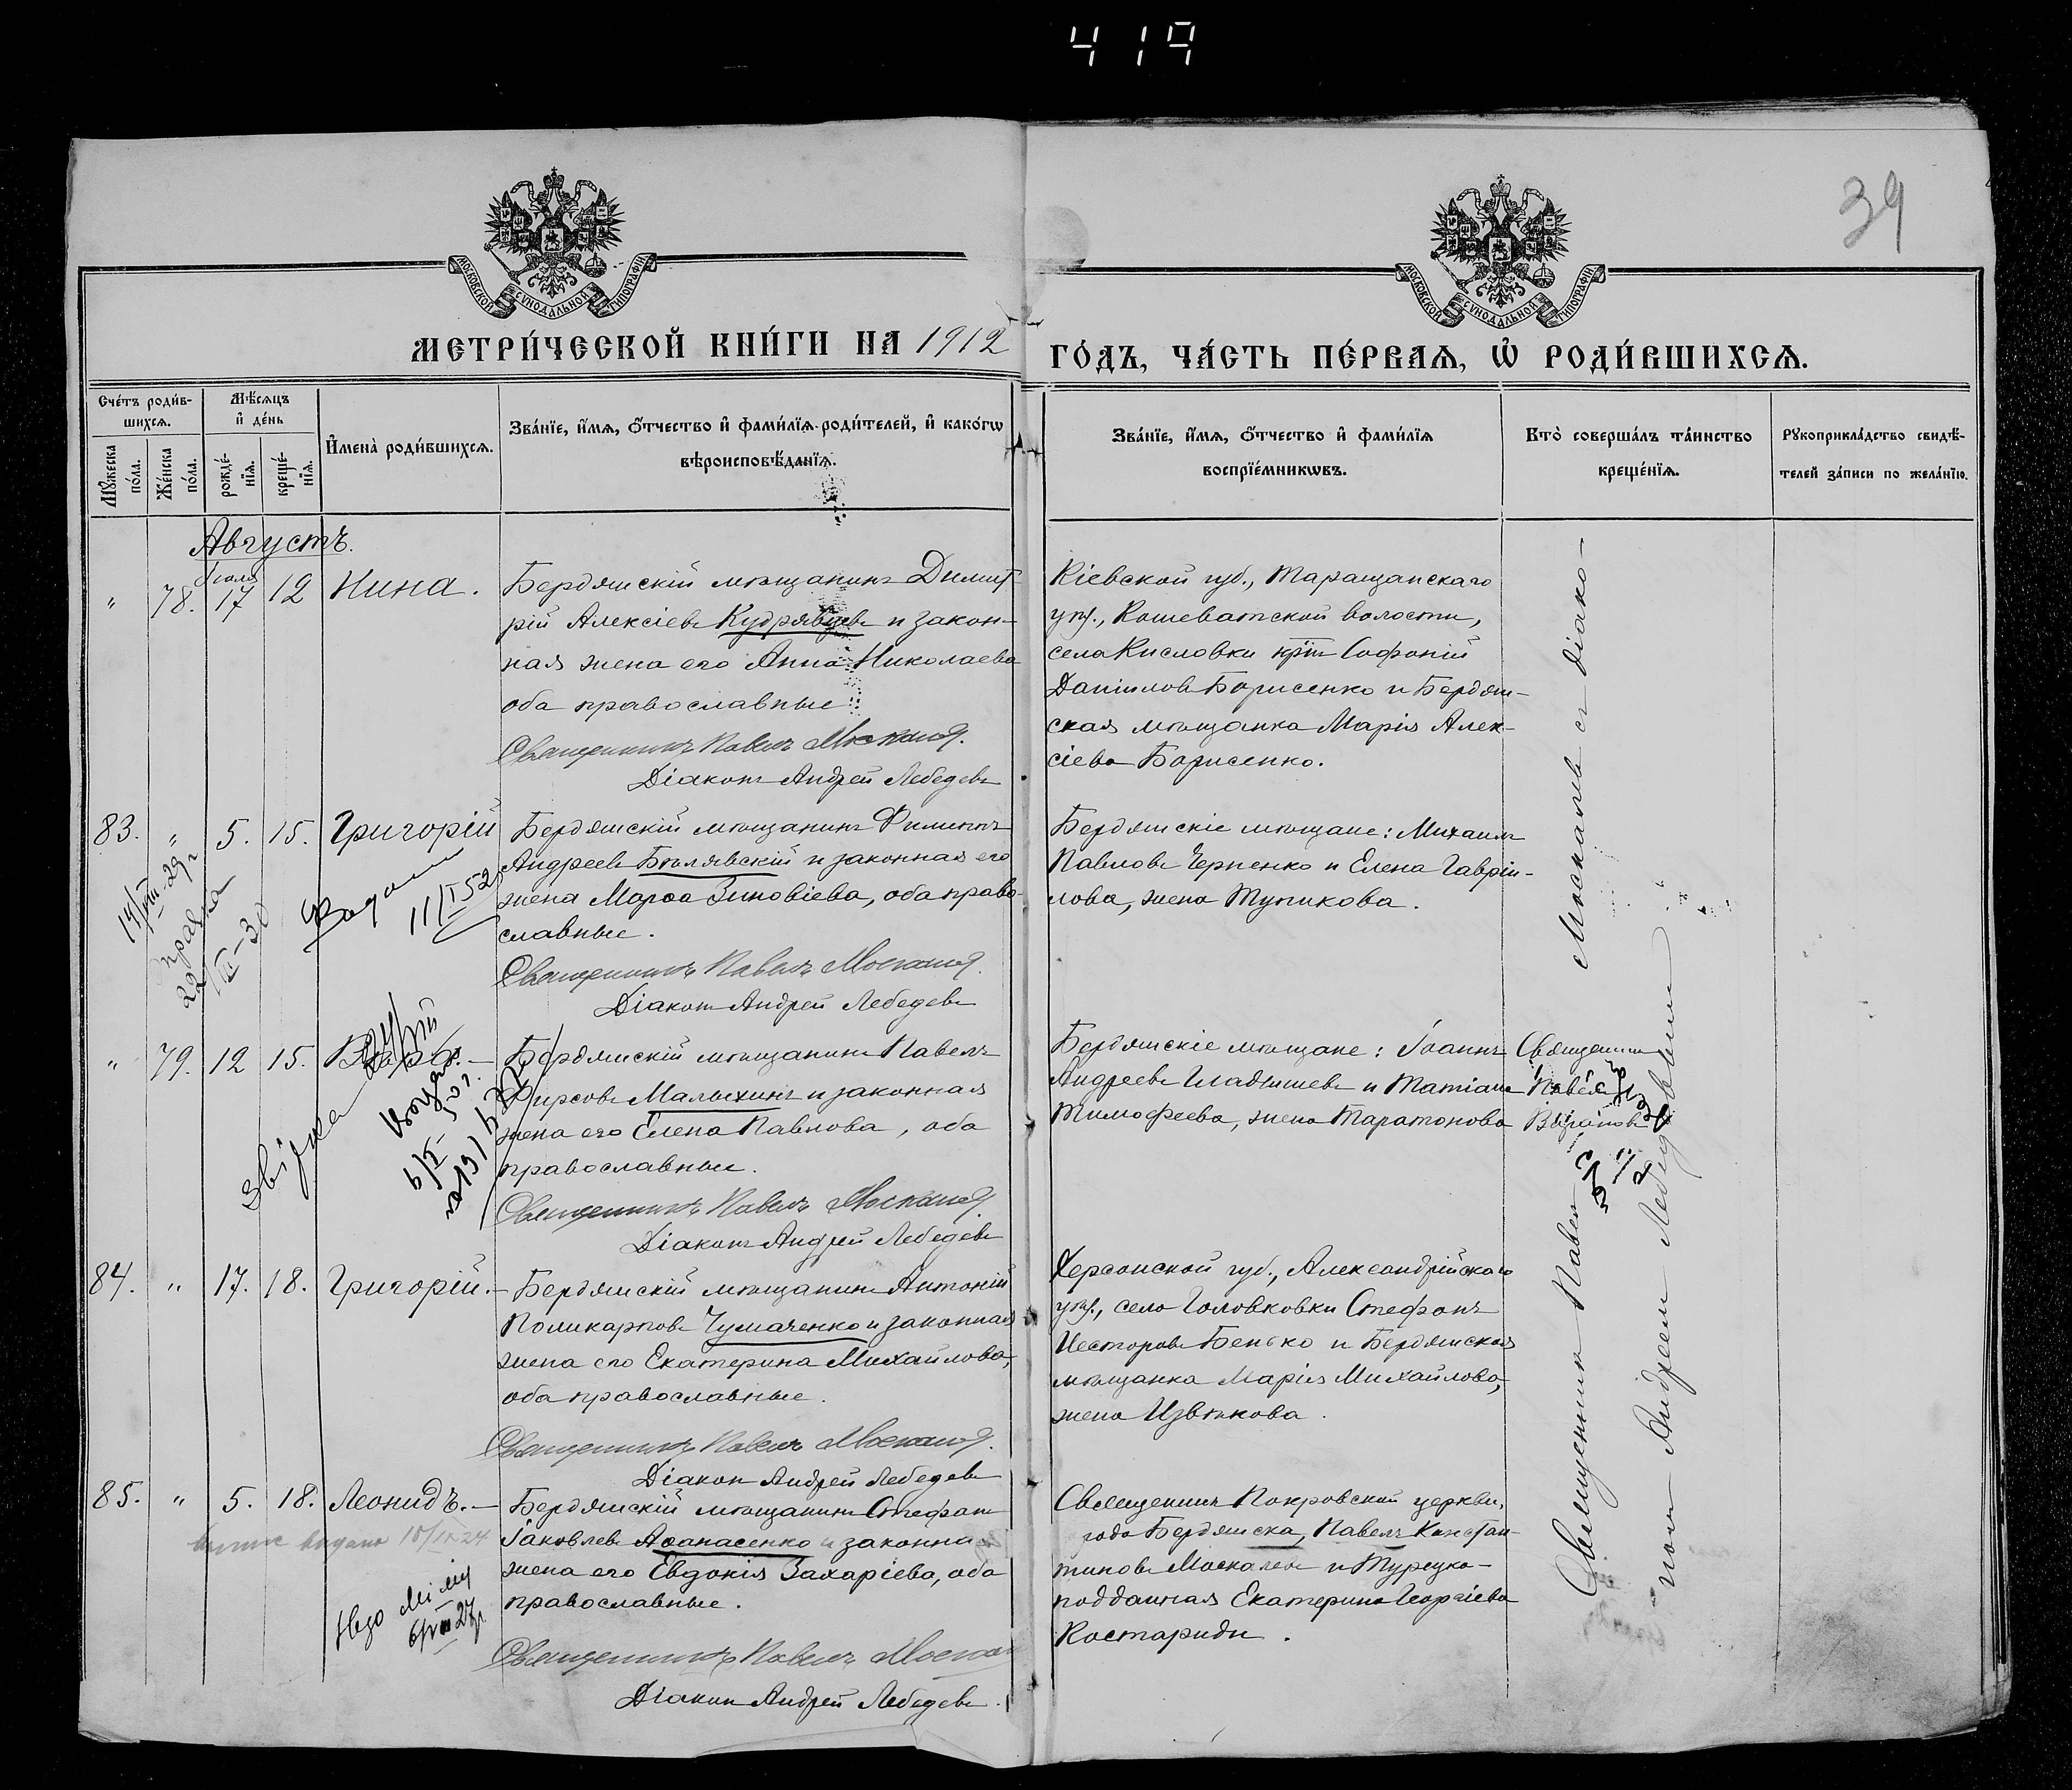 419
39
МОСКОВСКОЙ СѴНОДАЛЬНОЙ ТИПОГРАФІИ
МОСКОВСКОЙ СѴНОДАЛЬНОЙ ТИПОГРАФІИ
МЕТРИ́ЧЕСКОЙ КНИ́ГИ НА 1912
ГО́ДЪ, ЧА́СТЬ ПЕ́РВАѦ, Ѡ҆ РОДИ́ВШИХСѦ.
Сче́тъ роди́в-
шихсѧ.
Мꙋжеска по́ла.
Же́нска по́ла.
Мѣ́сѧцъ
и҆ де́нь
рожде́-
нїѧ.
креще́-
нїѧ.
И҆мена̀ роди́вшихсѧ.
Зва́нїе, и҆́мѧ, ѻ҆́тчество и҆ фами́лїѧ роди́телей, и҆ како́гѡ
вѣроисповѣ́данїѧ.
Зва́нїе, и҆́мѧ, ѻ҆́тчество и҆ фами́лїѧ
воспрїе́мникѡвъ.
Кто̀ соверша́лъ та́инство
креще́нїѧ.
Рꙋкоприкла́дство свидѣ́-
телей за́писи по жела́нїю.
Августъ.
" 78. Іюля 17 12 Нина.
Бердянскій мѣщанинъ Димит-
рій Алексіевъ Кудрявцевъ и закон-
ная жена его Анна Николаева
оба православные
Священникъ Павелъ Москалев
Діаконъ Андрей Лебедевъ
Кіевской губ., Таращанскаго
уѣз., Кошеватской волости,
села Кисловки кр̃нъ Софоній
Даніиловъ Борисенко и Бердян-
ская мѣщанка Марія Алек-
сіева Борисенко.
83. " 5. 15. Григорій
Бердянскій мѣщанинъ Филиппъ
Андреевъ Бѣлявскій и законная его
жена Марѳа Зиновіева, оба право-
славные.
Священникъ Павелъ Москалев
Діаконъ Андрей Лебедевъ
11/I 52
Бердянскіе мѣщане: Михаилъ
Павловъ Черненко и Елена Гаврі-
лова, жена Тупикова.
" 79. 12 15.
Бердянскій мѣщанинъ Павелъ
Фирсовъ Малыхинъ и законная
жена его Елена Павлова, оба
православные.
Священникъ Павелъ Москалев
Діаконъ Андрей Лебедевъ
Бердянскіе мѣщане: Іоаннъ
Андреевъ Гладышевъ и Татіана
Тимофеева, жена Таратонова
Священникъ
Павелъ
84. " 17. 18. Григорій.
Бердянскій мѣщанинъ Антоній
Поликарповъ Чумаченко и законная
жена его Екатерина Михайлова,
оба православные.
Священникъ Павелъ Москалев
Діаконъ Андрей Лебедевъ
Херсонской губ., Александрійскаго
уѣз., села Головковки Стефанъ
Несторовъ Бенько и Бердянская
мѣщанка Марія Михайлова,
жена Цвѣткова.
85. " 5. 18. Леонидъ.
Бердянскій мѣщанинъ Стефанъ
Іаковлевъ Аѳанасенко и законная
жена его Евдокія Захаріева, оба
православные.
Священникъ Павелъ Москалев
Діаконъ Андрей Лебедевъ.
Священникъ Покровской церкви,
года Бердянска, Павелъ Констан-
тиновъ Москалевъ и Турецко-
подданная Екатерина Георгіева
Костариди.
Священник Павел Москалевъ с діако-
ном Андреем Лебедевым